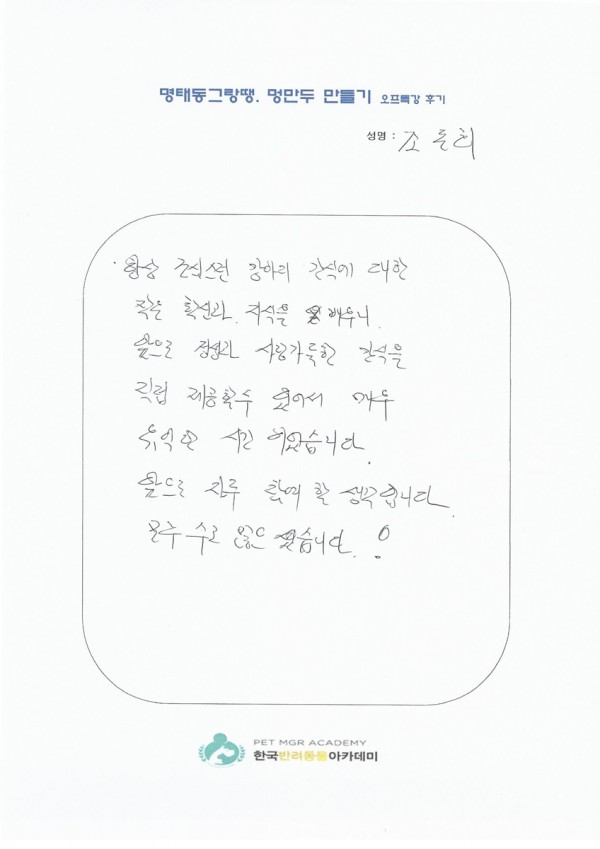 명태동그랑땡. 멍만두 만들기 오프특강 후기
성명 : 조 은희
· 항상 조심스런 강아지 간식에 대한
작은 확신과 지식을 배우니.
앞으로 정성과 사랑가득한 간식을
직접 제공할수 있어서 매우
유익한 시간 이었습니다.
앞으로 자주 참여 할 생각 입니다.
모두 수고 많으셨습니다. !
PET MGR ACADEMY
한국반려동물아카데미